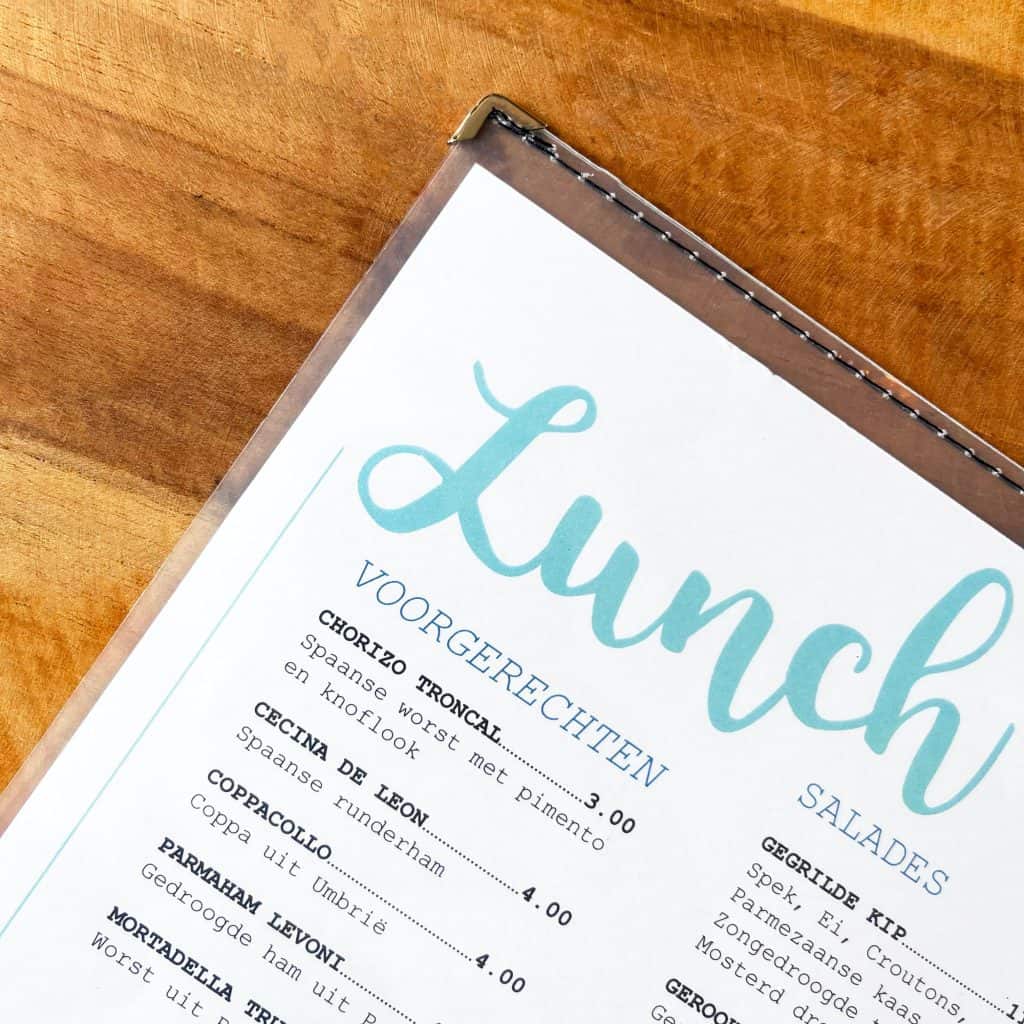 Lunch
VOORGERECHTEN
CHORIZO TRONCAL..........3.00
Spaanse worst met pimento
en knoflook
CECINA DE LEON..........4.00
Spaanse runderham
COPPACOLLO..........4.00
Coppa uit Umbrië
PARMAHAM LEVONI..........
Gedroogde ham uit
MORTADELLA
Worst uit
SALADES
GEGRILDE KIP..........
Spek, Ei, Croutons,
Parmezaanse kaas
Zongedroogde
Mosterd